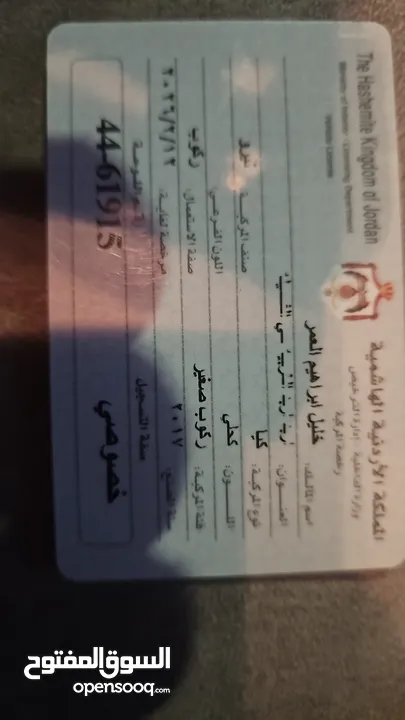 The Hashemite Kingdom of Jordan
Ministry of Interior - Licensing Department
Vehicle License
المملكة الأردنية الهاشمية
وزارة الداخلية - إدارة الترخيص
رخصة المركبة
اسم المالك: خليل ابراهيم العمر
العنوان:
نوع المركبة: كيا
صنف المركبة: نيرو
اللون: كحلي
اللون الفرعي:
فئة المركبة: ركوب صغير
صفة الاستعمال: ركوب
سنة الصنع: ٢٠١٧
مرخصة لغاية:
صفة التسجيل
رقم اللوحة
خصوصي
44-61915
السوق المفتوح
opensooq.com